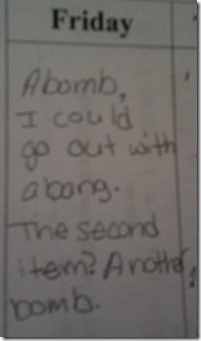 Friday
A bomb,
I could
go out with
a bang.
The second
item? Another
bomb.